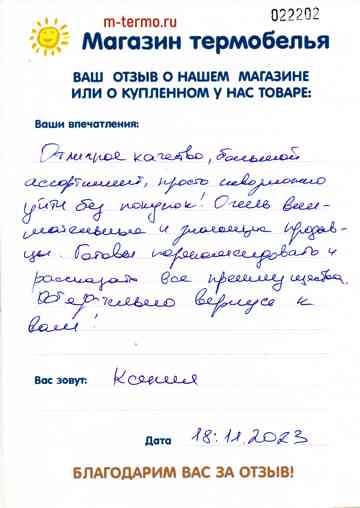 m-termo.ru
022202
Магазин термобелья
ВАШ ОТЗЫВ О НАШЕМ МАГАЗИНЕ
ИЛИ О КУПЛЕННОМ У НАС ТОВАРЕ:
Ваши впечатления:
Отличное качество, большой
ассортимент, просто невозможно
уйти без покупок! Очень вни-
мательные и знающие продав-
цы. Готовы порекомендовать и
рассказать все преимущества.
Обязательно вернусь к
вам!
Вас зовут: Ксения
Дата 18.11.2023
БЛАГОДАРИМ ВАС ЗА ОТЗЫВ!